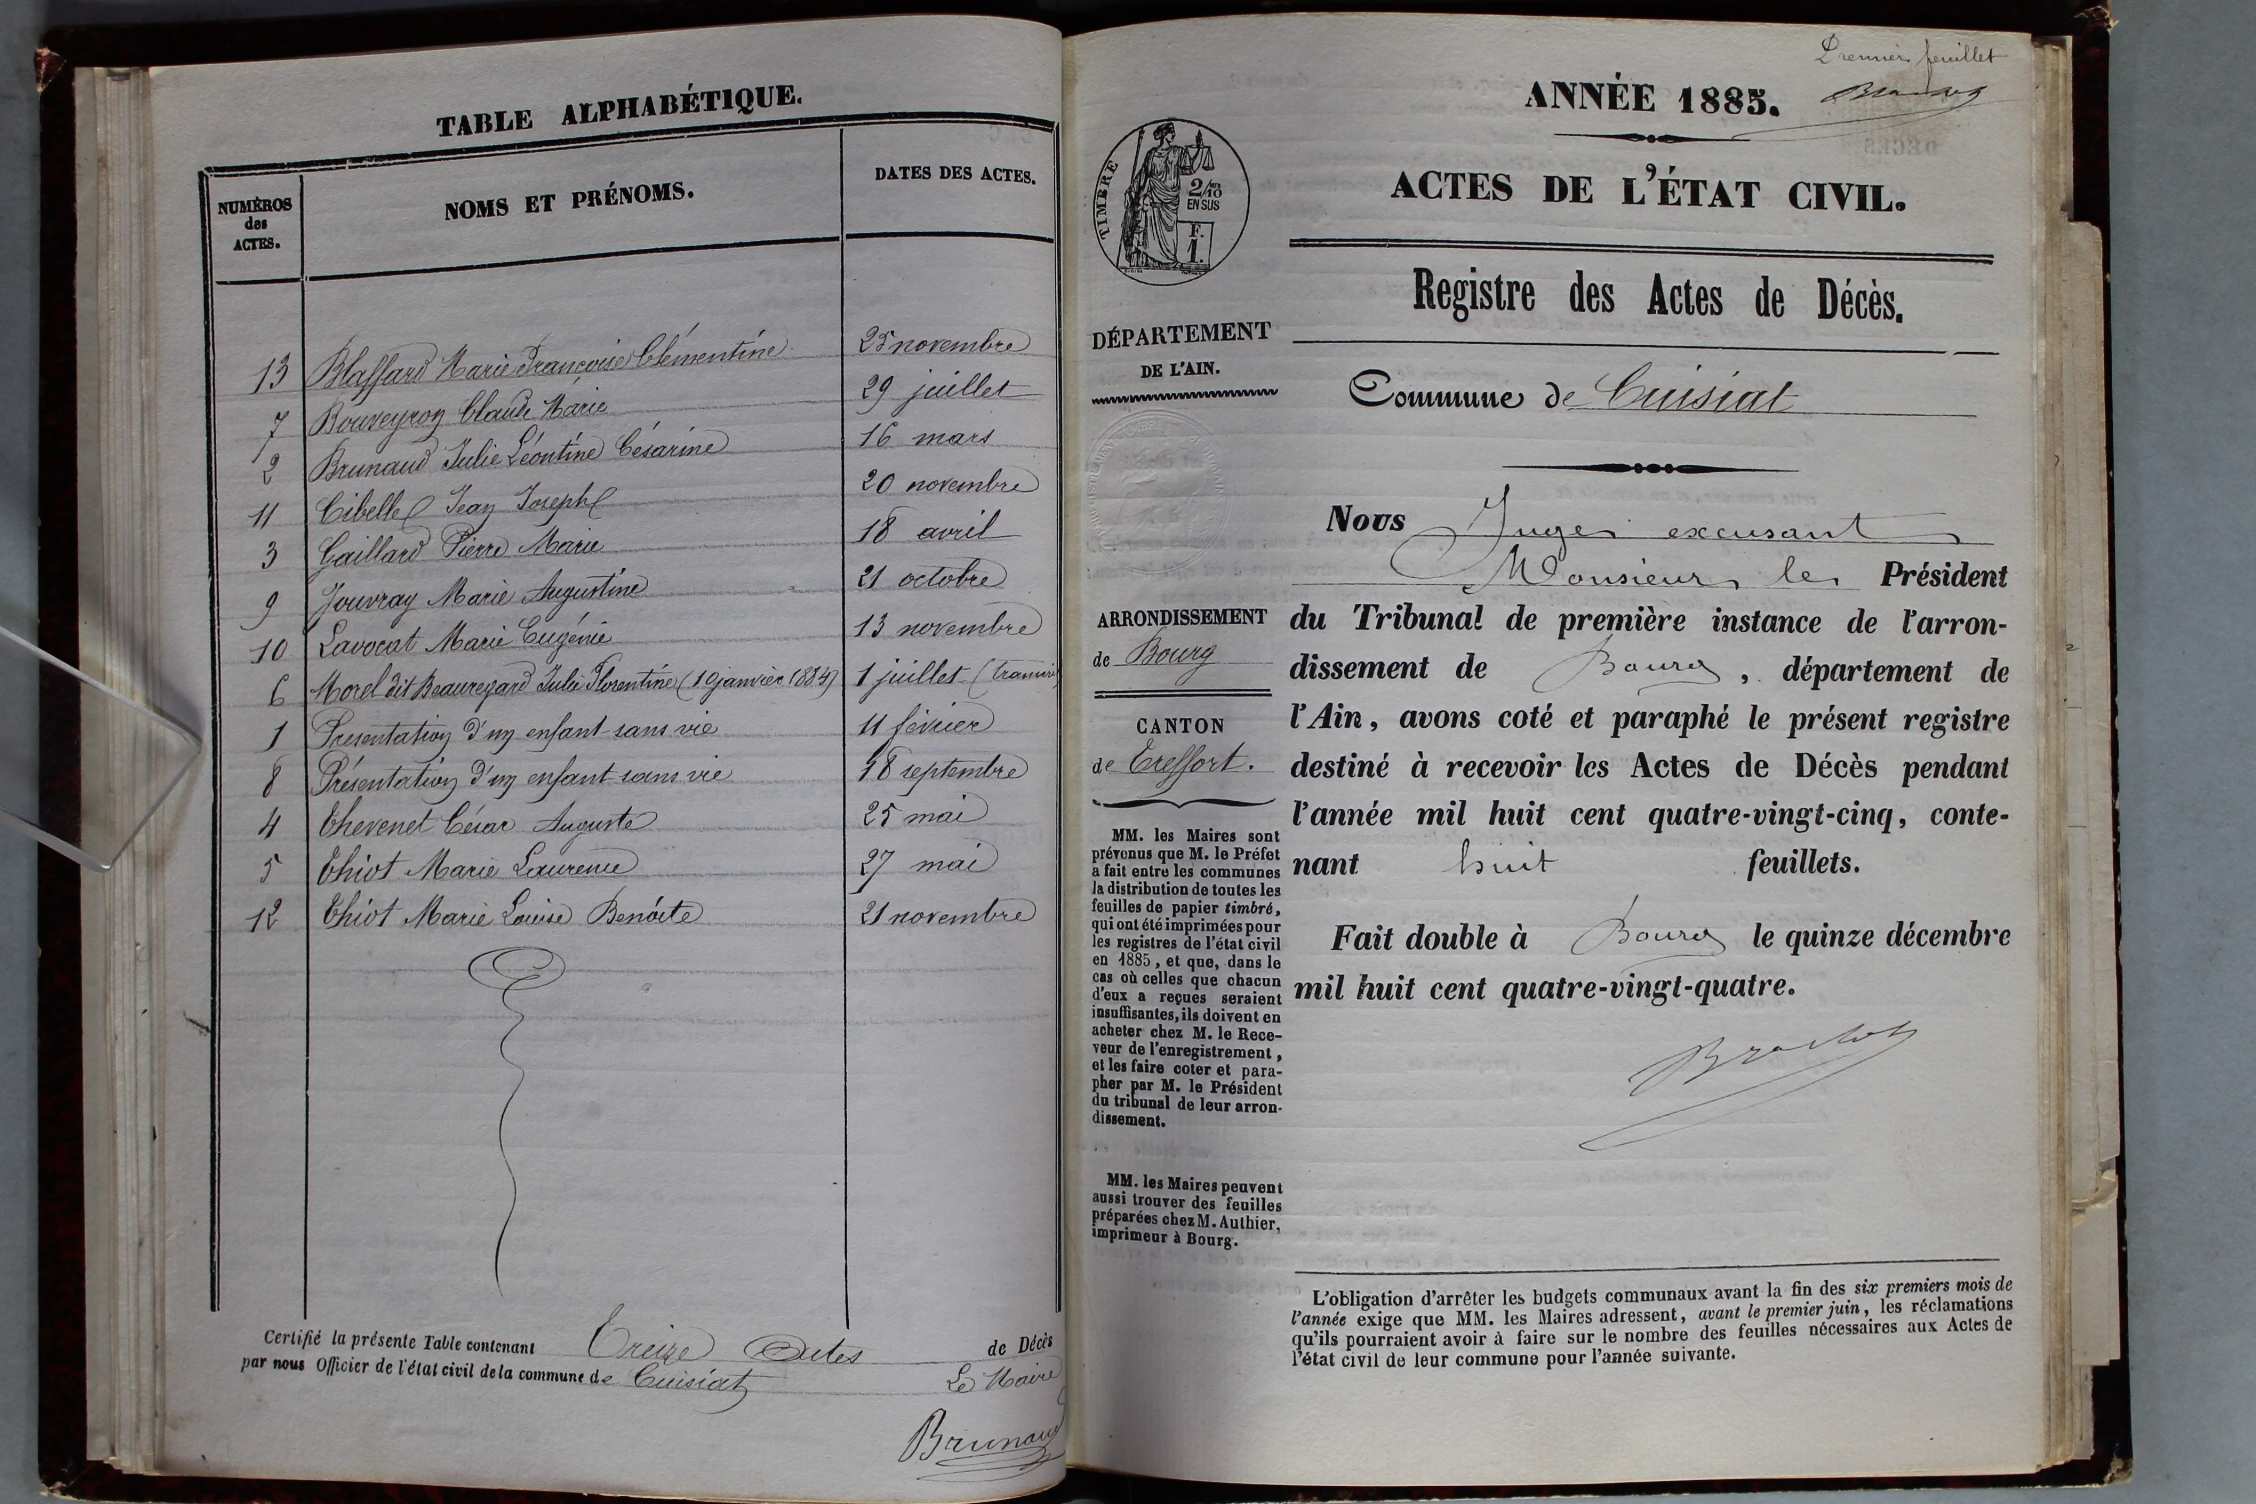 TABLE ALPHABÉTIQUE.
NUMÉROS des ACTES. NOMS ET PRÉNOMS. DATES DES ACTES.
13 Blaffard Marie Françoise Clémentine 25 novembre
7 Bouveyron Claude Marie 29 juillet
2 Brunaud Julie Léontine Césarine 16 mars
11 Cibelle Jean Joseph 20 novembre
3 Gaillard Pierre Marie 18 avril
9 Jouvray Marie Augustine 21 octobre
10 Lavocat Marie Eugénie 13 novembre
6 Morel dit Beauregard Julie Florentine (10 janvier 1884) 1 juillet
1 Présentation d'un enfant sans vie 11 février
8 Présentation d'un enfant sans vie 18 septembre
4 Thevenet César Auguste 25 mai
5 Thiot Marie Laurence 27 mai
12 Thiot Marie Louise Benoite 21 novembre
Certifié la présente Table contenant Treize Actes de Décès
par nous Officier de l'état civil de la commune de Cuisiat Le Maire
Brunaud
Premier feuillet
ANNÉE 1885.
ACTES DE L'ÉTAT CIVIL.
TIMBRE
2/10 EN SUS
F. 1.
Registre des Actes de Décès.
DÉPARTEMENT
DE L'AIN.
Commune de Cuisiat
ARRONDISSEMENT
de Bourg
CANTON
de Treffort.
MM. les Maires sont
prévenus que M. le Préfet
a fait entre les communes
la distribution de toutes les
feuilles de papier timbré,
qui ont été imprimées pour
les registres de l'état civil
en 1885, et que, dans le
cas où celles que chacun
d'eux a reçues seraient
insuffisantes, ils doivent en
acheter chez M. le Rece-
veur de l'enregistrement,
et les faire coter et para-
pher par M. le Président
du tribunal de leur arron-
dissement.
MM. les Maires peuvent
aussi trouver des feuilles
préparées chez M. Authier,
imprimeur à Bourg.
Nous Juge excusant
Monsieur le Président
du Tribunal de première instance de l'arron-
dissement de Bourg, département de
l'Ain, avons coté et paraphé le présent registre
destiné à recevoir les Actes de Décès pendant
l'année mil huit cent quatre-vingt-cinq, conte-
nant huit feuillets.
Fait double à Bourg le quinze décembre
mil huit cent quatre-vingt-quatre.
L'obligation d'arrêter les budgets communaux avant la fin des six premiers mois de
l'année exige que MM. les Maires adressent, avant le premier juin, les réclamations
qu'ils pourraient avoir à faire sur le nombre des feuilles nécessaires aux Actes de
l'état civil de leur commune pour l'année suivante.